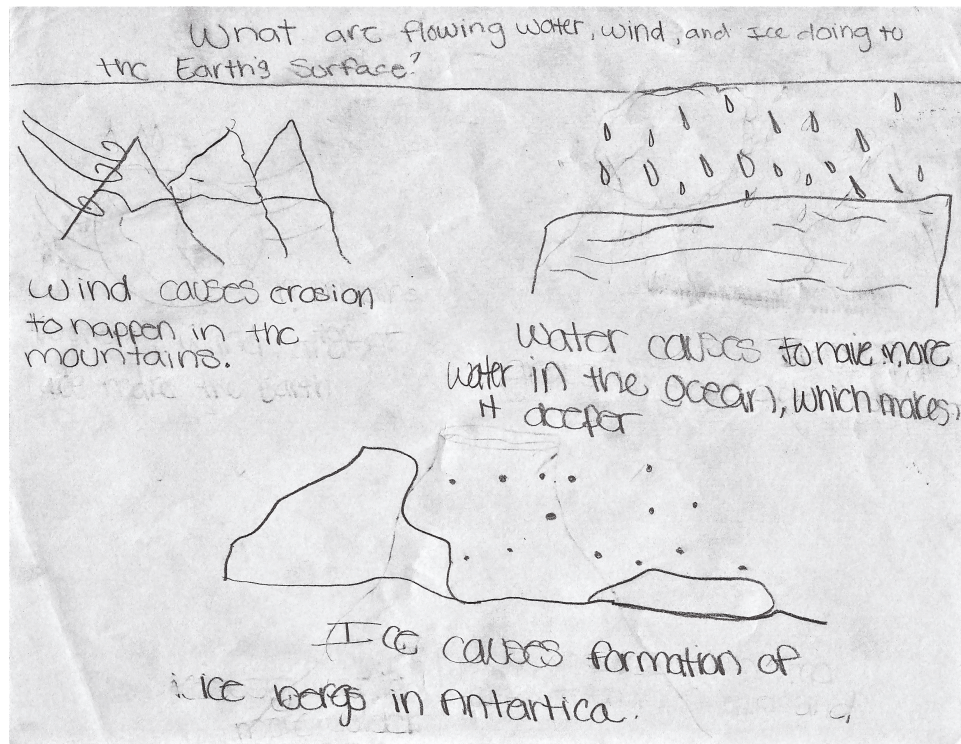 What are flowing water, wind, and Ice doing to
the Earth's Surface?
Wind causes erosion
to happen in the
mountains.
Water causes to have more
water in the ocean, which makes
it deeper
Ice causes formation of
ice bergs in Antartica.